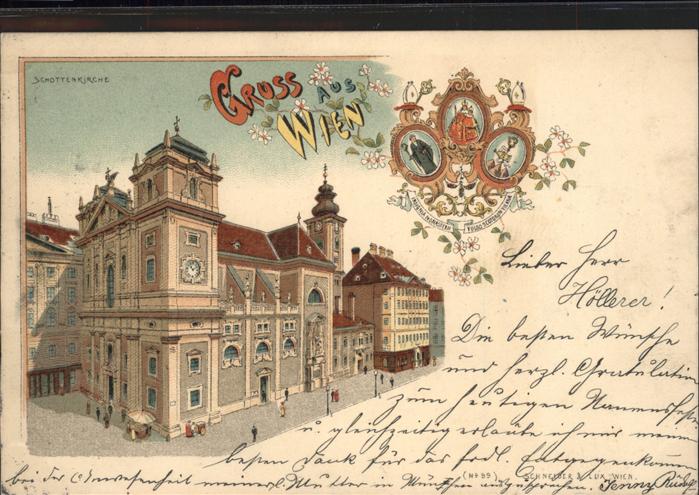 SCHOTTENKIRCHE
GRUSS AUS
WIEN
Lieber Herr
Höllerer!
Die besten Wünsche
und herzl. Gratulation
zum heutigen Namensfeste
u. gleichzeitig erlaube ich mir meinen
besten Dank für das frdl. Entgegenkommen
(No 99) SCHNEIDER & LUX, WIEN.
bei der Anwesenheit meiner l. Mutter in München auszusprechen. Jenny